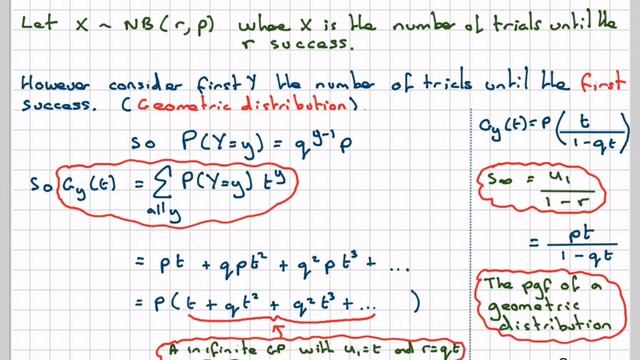 Let X ~ NB(r, p) where X is the number of trials until the
r success.
However consider first Y the number of trials until the first
success. (Geometric distribution)
so P(Y=y) = q^{y-1} p
So G_y(t) = ∑ P(Y=y) t^y
all y
= pt + qpt² + q²pt³ + ...
= p(t + qt² + q²t³ + ... )
A infinite GP with u₁=t and r=qt
G_y(t) = p (t / 1-qt)
S∞ = u₁ / 1-r
= pt / 1-qt
The pgf of a
geometric
distribution